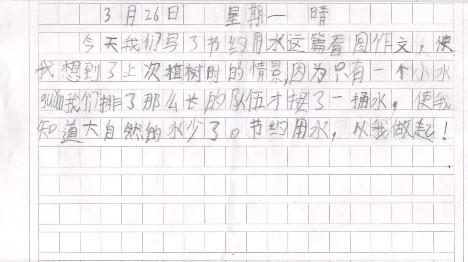 3月26日 星期一 晴
今天我们写了节约用水这篇看图作文，使
我想到了上次植树时的情景,因为只有一个小水
guǎn我们排了那么长的队伍才接了一桶水，使我
知道大自然的水少了。节约用水，从我做起！